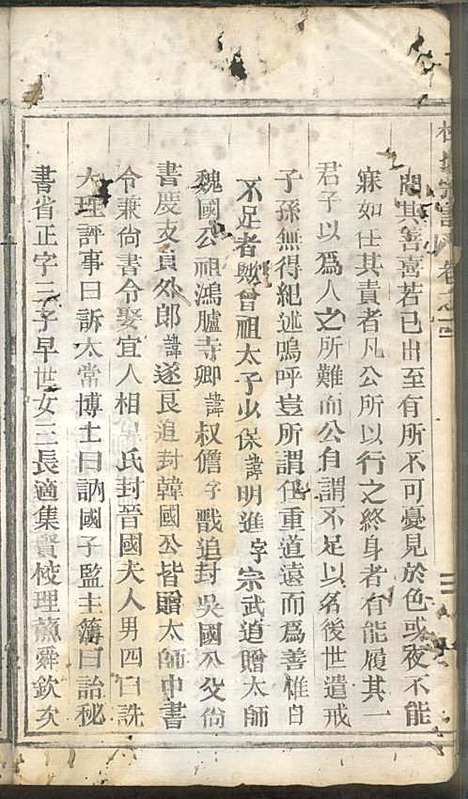 聞其善喜若己出至有所不可憂見於色或夜不能
寐如任其責者凡公所以行之終身者有能履其一
君子以爲人之所難而公自謂不足以名後世遺戒
子孫無得紀述嗚呼豈所謂任重道遠而爲善惟日
不足者歟曾祖太子少保諱明進字宗武追贈太師
魏國公祖鴻臚寺卿諱叔儋字戬追封吳國公父尙
書度支員外郎諱遂良追封韓國公皆贈太師中書
令兼尙書令娶宜人相里氏封晉國夫人男四曰詵
大理評事曰訴太常博士曰訥國子監主簿曰詒秘
書省正字三子早世女三長適集賢校理蘇舜欽次